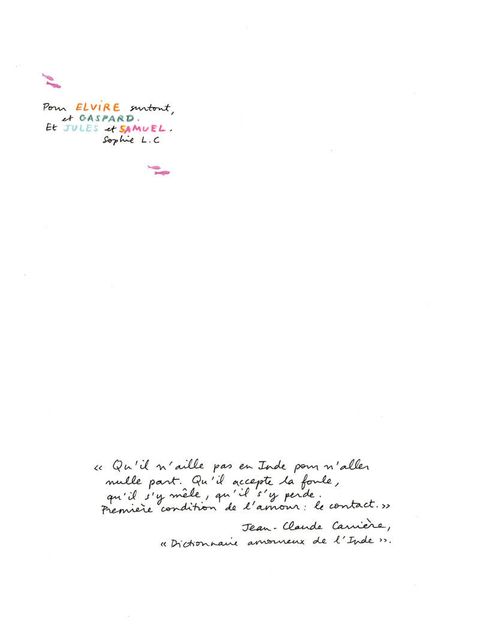 Pour ELVIRE surtout,
et GASPARD.
Et JULES et SAMUEL.
Sophie L.C
« Qu'il n'aille pas en Inde pour n'aller
nulle part. Qu'il accepte la foule,
qu'il s'y mêle, qu'il s'y perde.
Première condition de l'amour : le contact. »
Jean-Claude Carrière,
« Dictionnaire amoureux de l'Inde ».